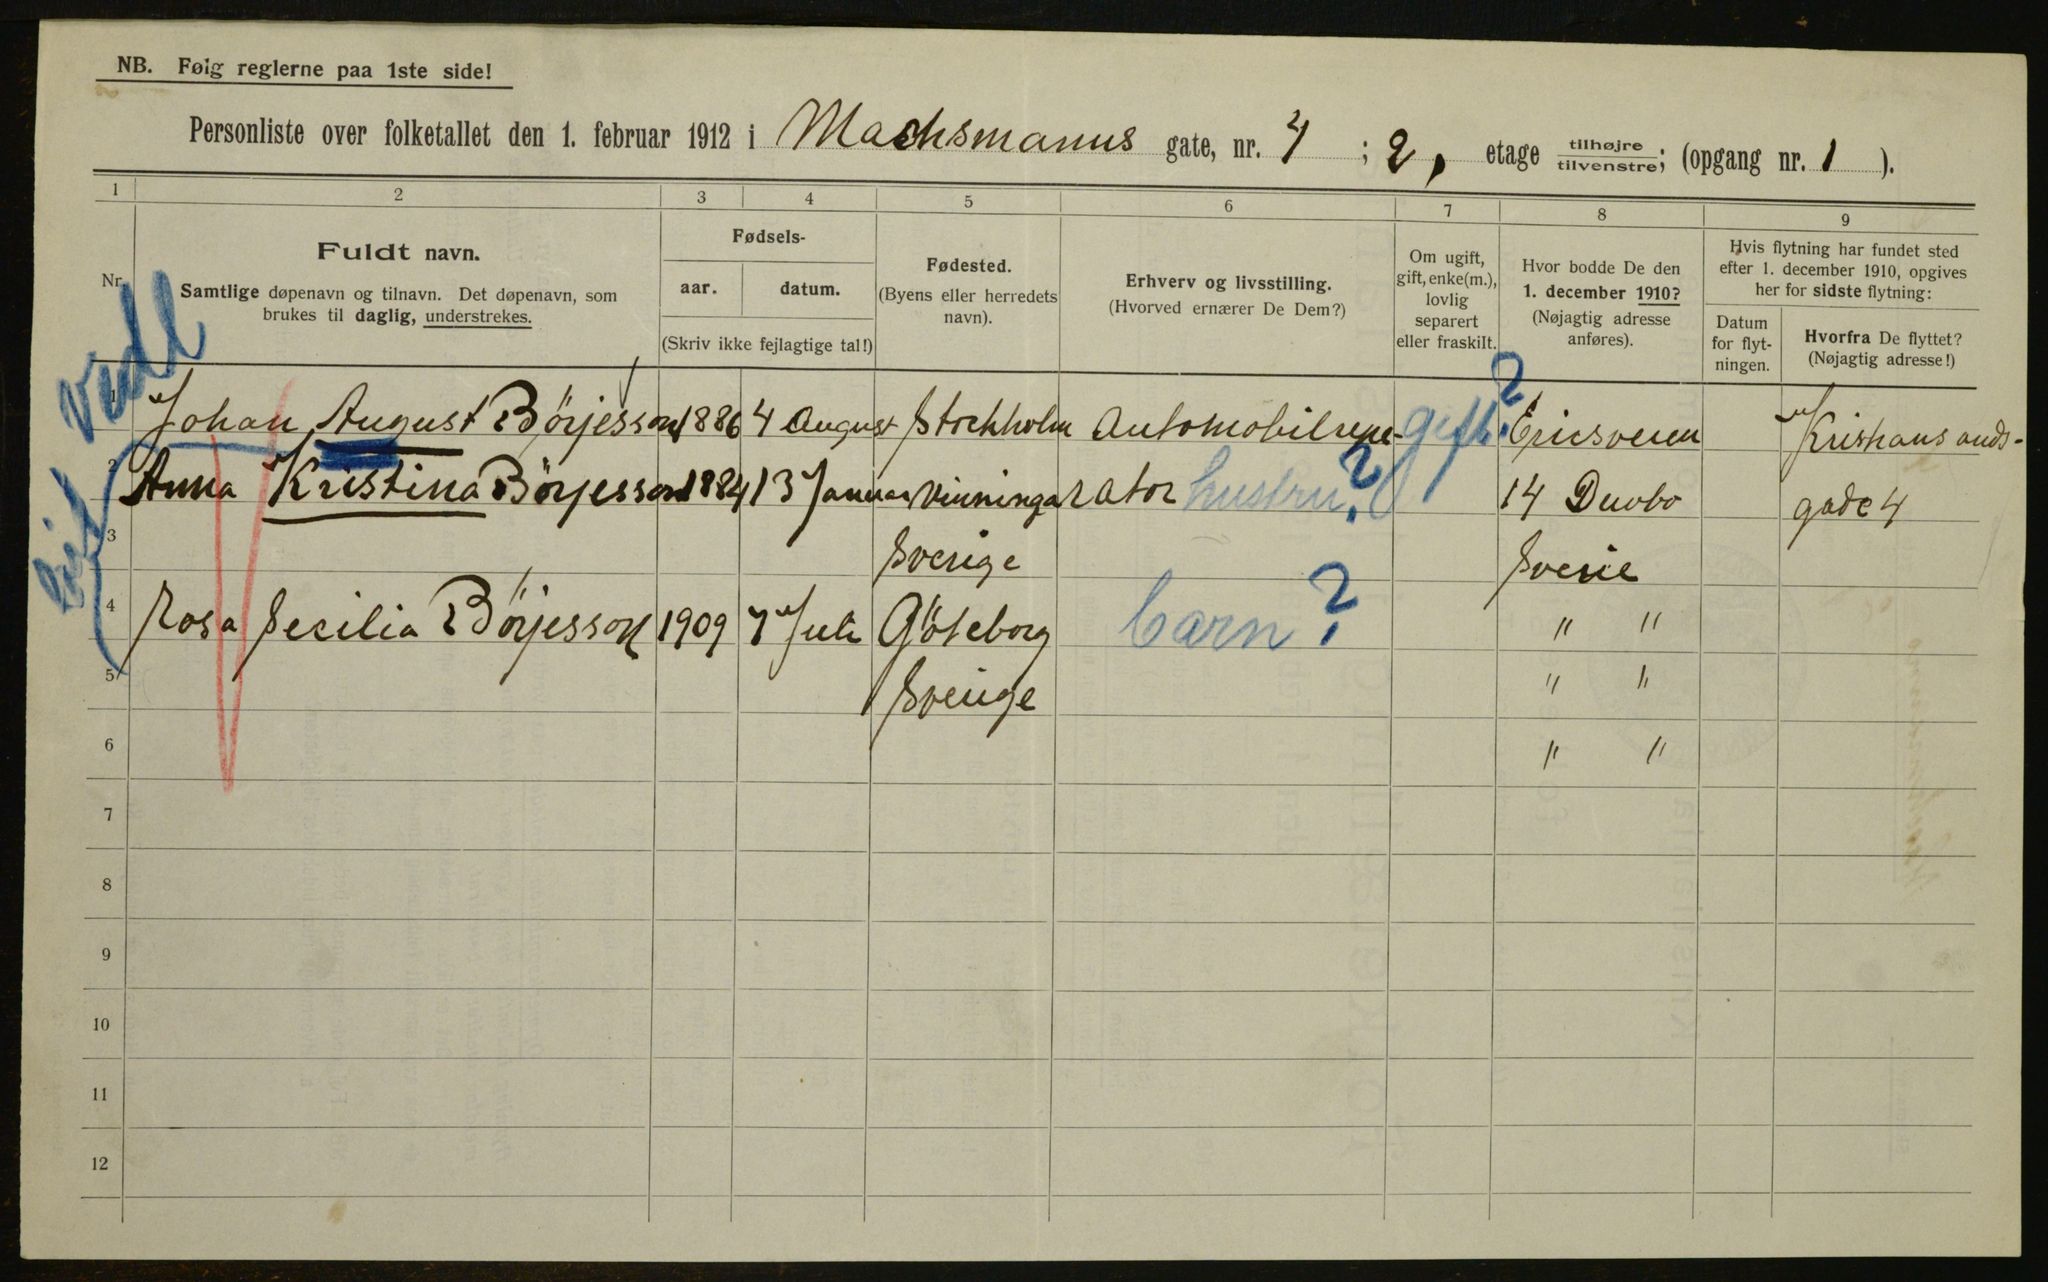 NB. Følg reglerne paa 1ste side!
Personliste over folketallet den 1. februar 1912 i Machsmanns gate, nr. 4 ; 2, etage tilhøjre tilvenstre; (opgang nr. 1 ).
1 2 3 4 5 6 7 8 9
Nr.
Fuldt navn.
Samtlige døpenavn og tilnavn. Det døpenavn, som
brukes til daglig, understrekes.
Fødsels-
aar. datum.
(Skriv ikke fejlagtige tal!)
Fødested.
(Byens eller herredets
navn).
Erhverv og livsstilling.
(Hvorved ernærer De Dem?)
Om ugift,
gift, enke(m.),
lovlig
separert
eller fraskilt.
Hvor bodde De den
1. december 1910?
(Nøjagtig adresse
anføres).
Hvis flytning har fundet sted
efter 1. december 1910, opgives
her for sidste flytning:
Datum
for flyt-
ningen.
Hvorfra De flyttet?
(Nøjagtig adresse!)
1 Johan August Börjesson 1886 4 August Stockholm Automobilrepe- gift? Ericsveien Kristiansands-
2 Anna Kristina Börjesson 1884 13 Januar Vinninga rator hustru? 14 Duvbo gade 4
3 Sverige Sverie
4 Rosa Secilia Börjesson 1909 7 Juli Göteborg barn? " "
5 Sverige " "
6 " "
7
8
9
10
11
12